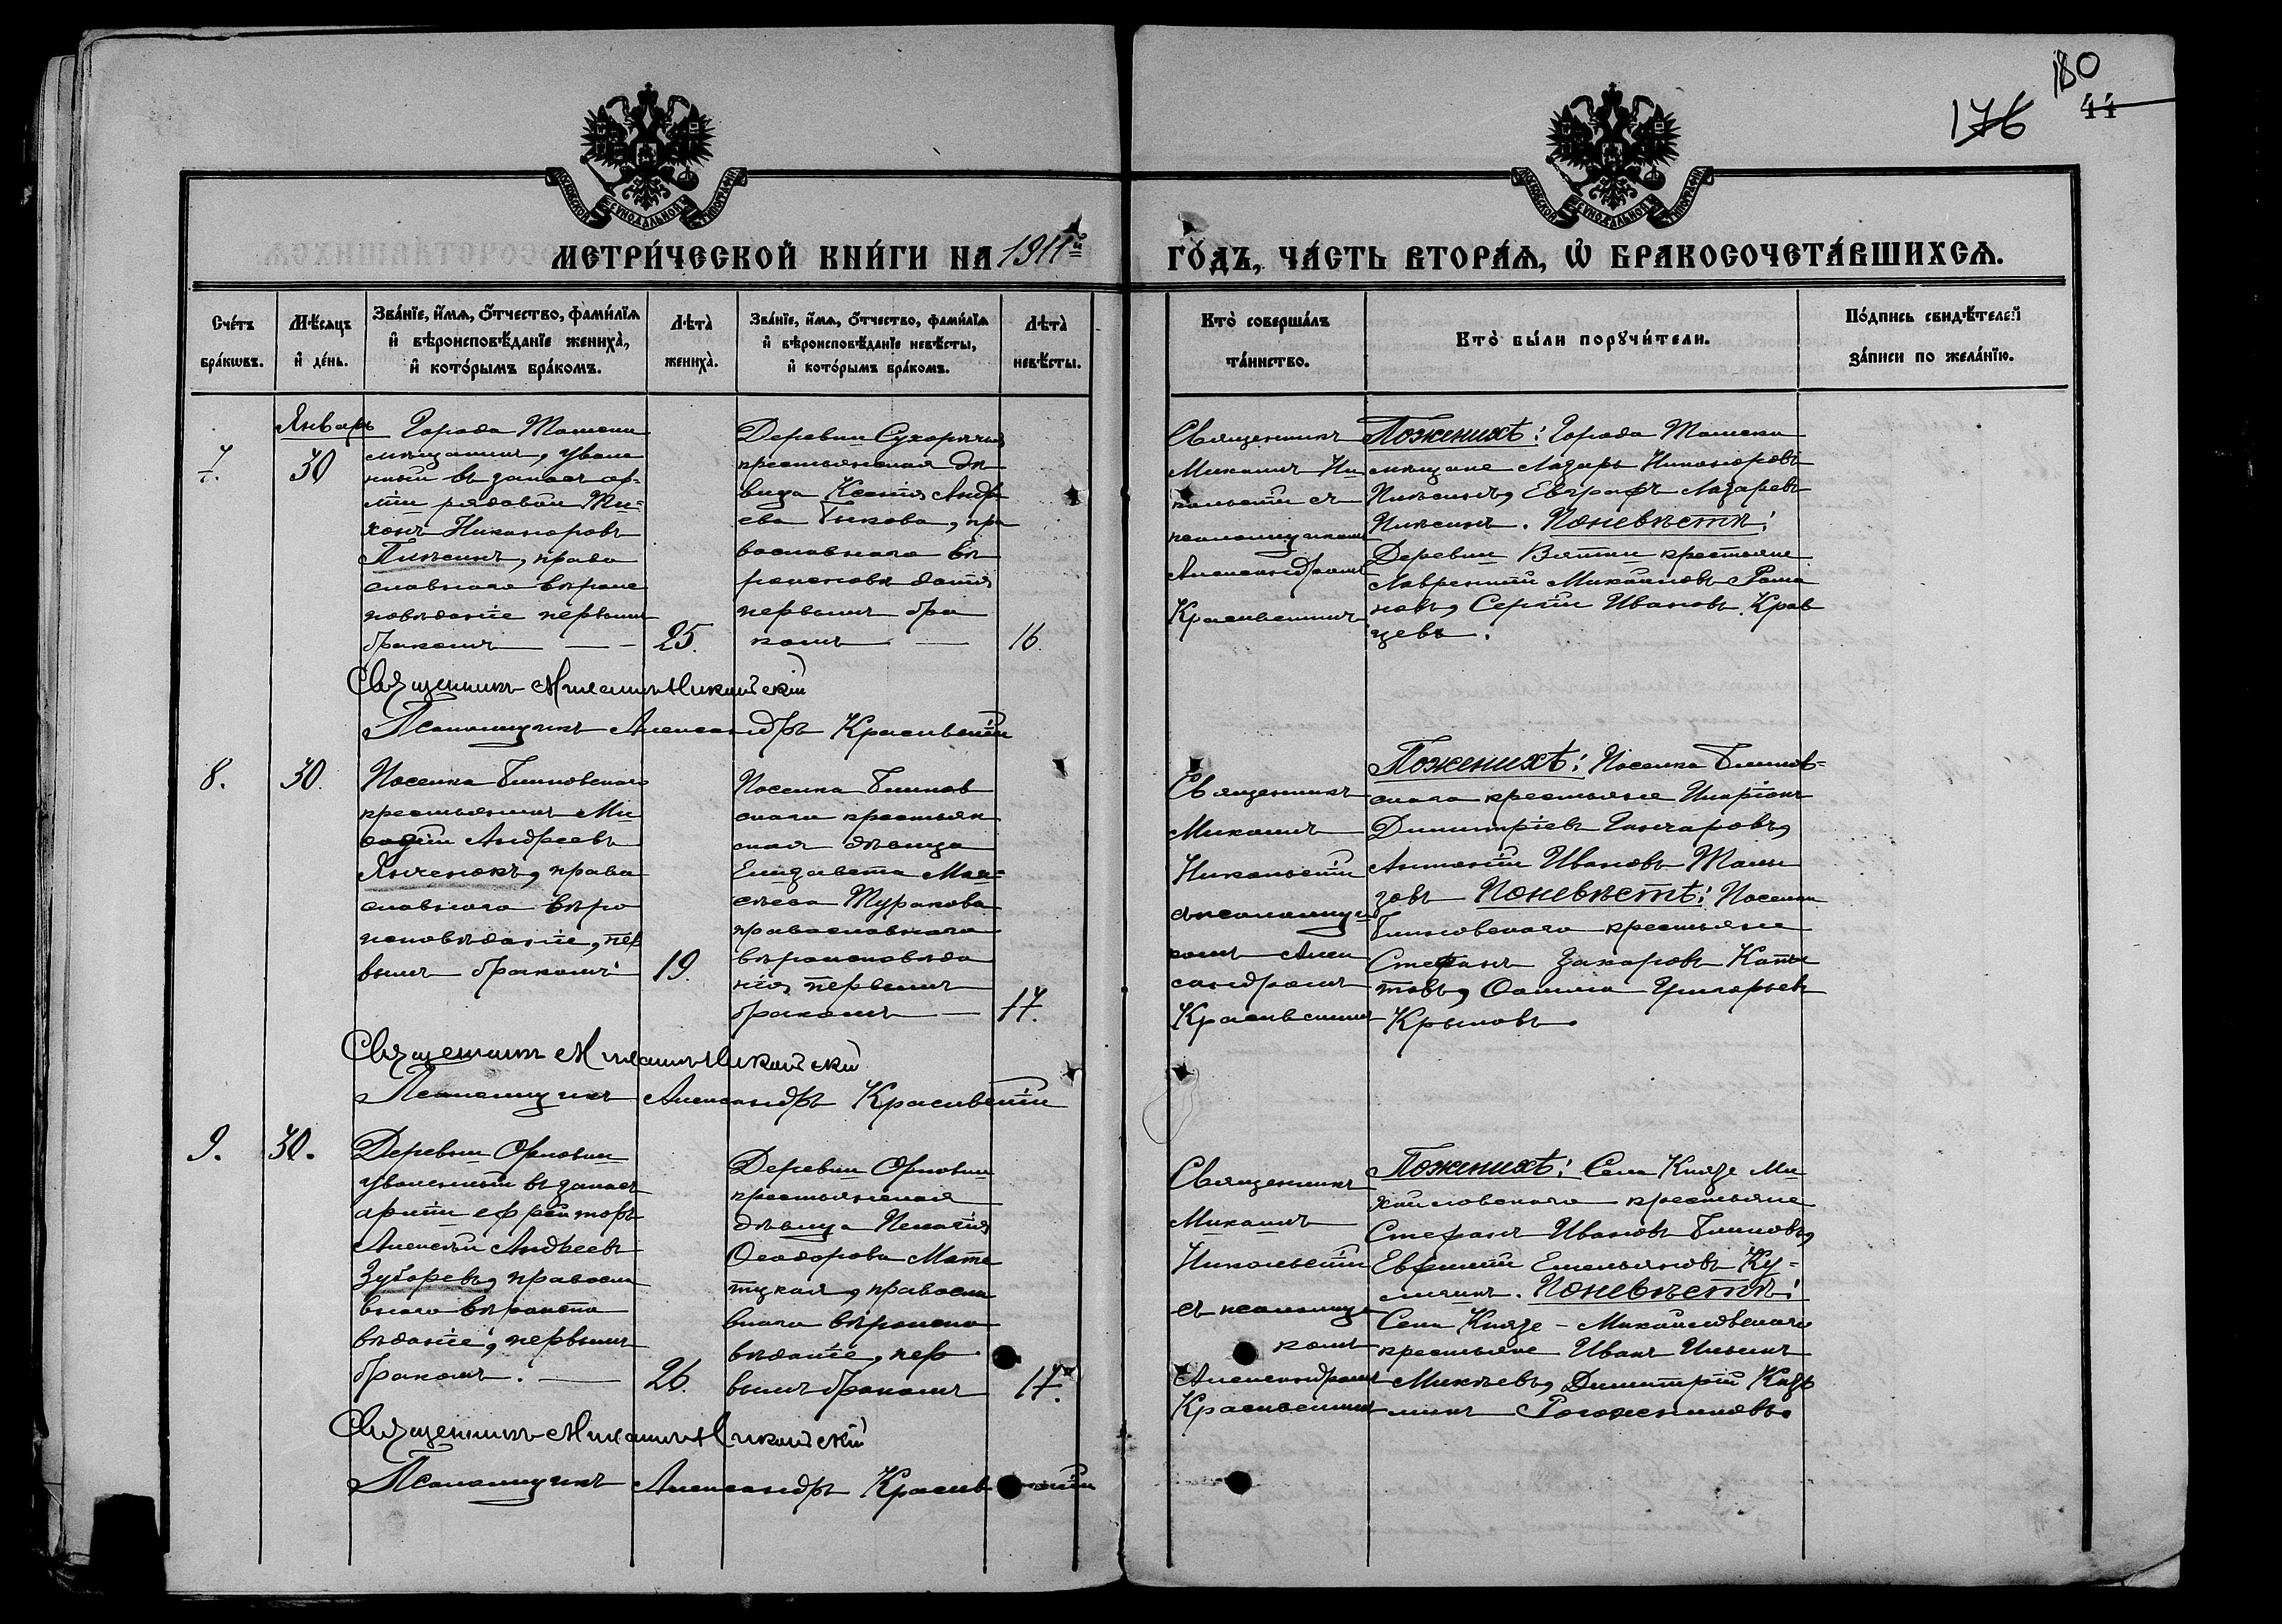 180
176
44
МОСКОВСКОЙ СУНОДАЛЬНОЙ ТИПОГРАФІИ
МОСКОВСКОЙ СУНОДАЛЬНОЙ ТИПОГРАФІИ
МЕТРИ́ЧЕСКОЙ КНИ́ГИ НА 1911й
ГО́ДЪ, ЧА́СТЬ ВТОРА́Ѧ, Ѽ БРАКОСОЧЕТА́ВШИХСѦ.
Сче́тъ
бра́кѡвъ.
Мѣ́сѧцъ
и҆ де́нь.
Зва́нїе, и҆́мѧ, ѻ҆́тчество, фами́лїѧ
и҆ вѣроисповѣ́данїе жениха̀,
и҆ кото́рымъ бра́комъ.
Лѣта̀
жениха̀.
Зва́нїе, и҆́мѧ, ѻ҆́тчество, фами́лїѧ
и҆ вѣроисповѣ́данїе невѣ́сты,
и҆ кото́рымъ бра́комъ.
Лѣта̀
невѣ́сты.
Кто̀ соверша́лъ
та́инство.
Кто̀ бы́ли порꙋчи́тели.
По́дпись свидѣ́телей
за́писи по жела́нїю.
7.
Январь
30
Города Томска
мѣщанинъ, уволе
нный въ запасъ ар-
міи рядовой Ти-
хонъ Никаноровъ
православнаго вѣроис
повѣданіе первымъ
бракомъ
25.
Деревни
крестьянская дѣ
вица Ксенія Андре
ева Быкова, пра
вославнаго вѣ
роисповѣданія
первымъ бра
комъ
16
Священникъ
Михаилъ Ни
кольскій съ
псаломщикомъ
Александромъ
Красивскимъ
По женихѣ: Города Томска
мѣщане Лазарь Никаноровъ
Евграфъ Лазаревъ
По невѣстѣ:
Деревни Вятки крестьяне
Лаврентій Михайловъ Рома
новъ, Сергій Ивановъ Крав
цевъ.
Священникъ Михаилъ Никольскій
Псаломщикъ Александръ Красивскій
8.
30.
Поселка Блиновскаго
крестьянинъ Ме
ѳодій Андреевъ
Янченокъ, право
славнаго вѣро
исповѣданіе, пер
вымъ бракомъ
19.
Поселка Блинов
скаго крестьян
ская дѣвица
Елизавета Мои-
сеева Туракова
православнаго
вѣроисповѣда
нія, первымъ
бракомъ
17.
Священникъ
Михаилъ
Никольскій
съ псаломщи
комъ Алек
сандромъ
Красивскимъ
По женихѣ: Поселка Блинов-
скаго крестьяне Иларіонъ
Димитріевъ Гончаровъ,
Антоній Ивановъ
По невѣстѣ: Поселка
Блиновскаго крестьяне
Стефанъ Захаровъ
Григорьевъ
Крыловъ.
Священникъ Михаилъ Никольскій
Псаломщикъ Александръ Красивскій
9.
30.
Деревни Орловки
уволенный въ запасъ
арміи ефрейторъ
Алексѣй Андреевъ
Зубаревъ, правосла
внаго вѣроиспо
вѣданіе, первымъ
бракомъ.
26.
Деревни Орловки
крестьянская
дѣвица Пелагія
Ѳеодорова
правосла
внаго вѣроиспо
вѣданіе, пер
вымъ бракомъ
17.
Священникъ
Михаилъ
Никольскій
съ псаломщи
комъ
Александромъ
Красивскимъ
По женихѣ: Села Князе Ми-
хайловскаго крестьяне
Стефанъ Ивановъ Блиновъ,
Евфимій Емельяновъ
По невѣстѣ:
Села Князе-Михайловскаго
крестьяне Иванъ Ильинъ
Михѣевъ, Димитрій Кузь
минъ Рогожниковъ.
Священникъ Михаилъ Никольскій
Псаломщикъ Александръ Красивскій